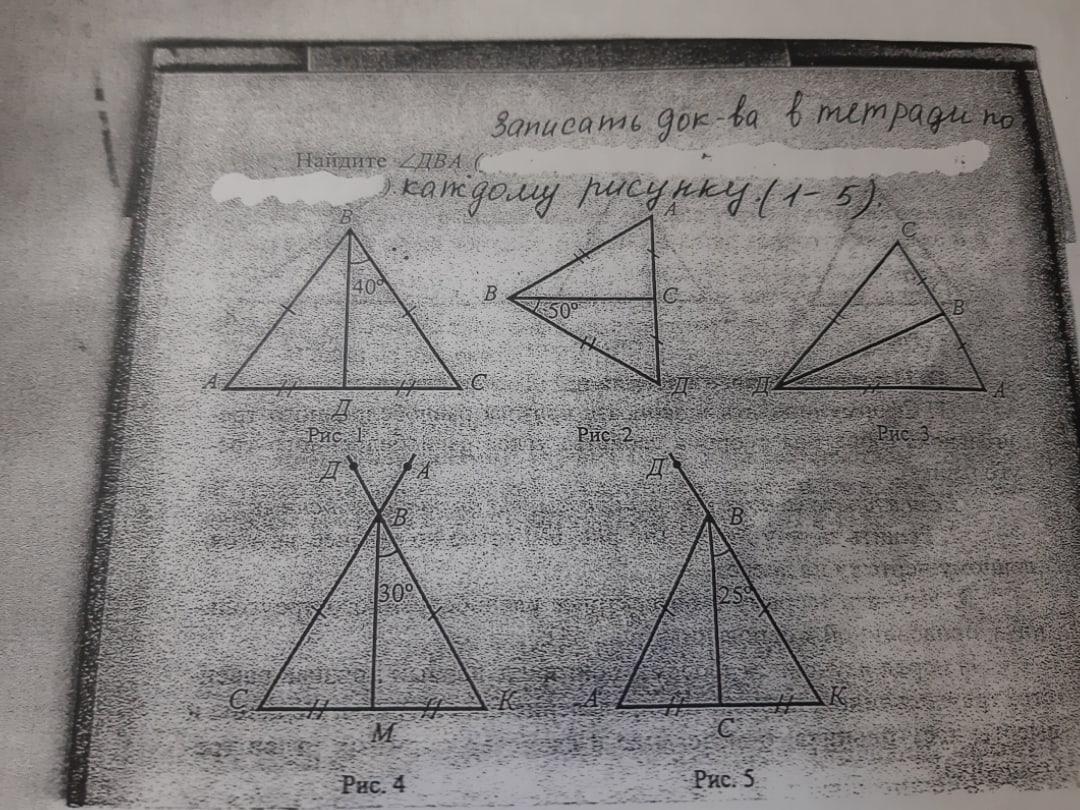 Записать док-ва в тетради по
Найдите ∠ДВА (
) каждому рисунку. (1-5).
В
40°
А
С
Д
Рис. 1
А
В
С
50°
Д
Рис. 2
С
В
Д
А
Рис. 3
Д
А
В
30°
С
К
М
Рис. 4
Д
В
25°
А
К
С
Рис. 5